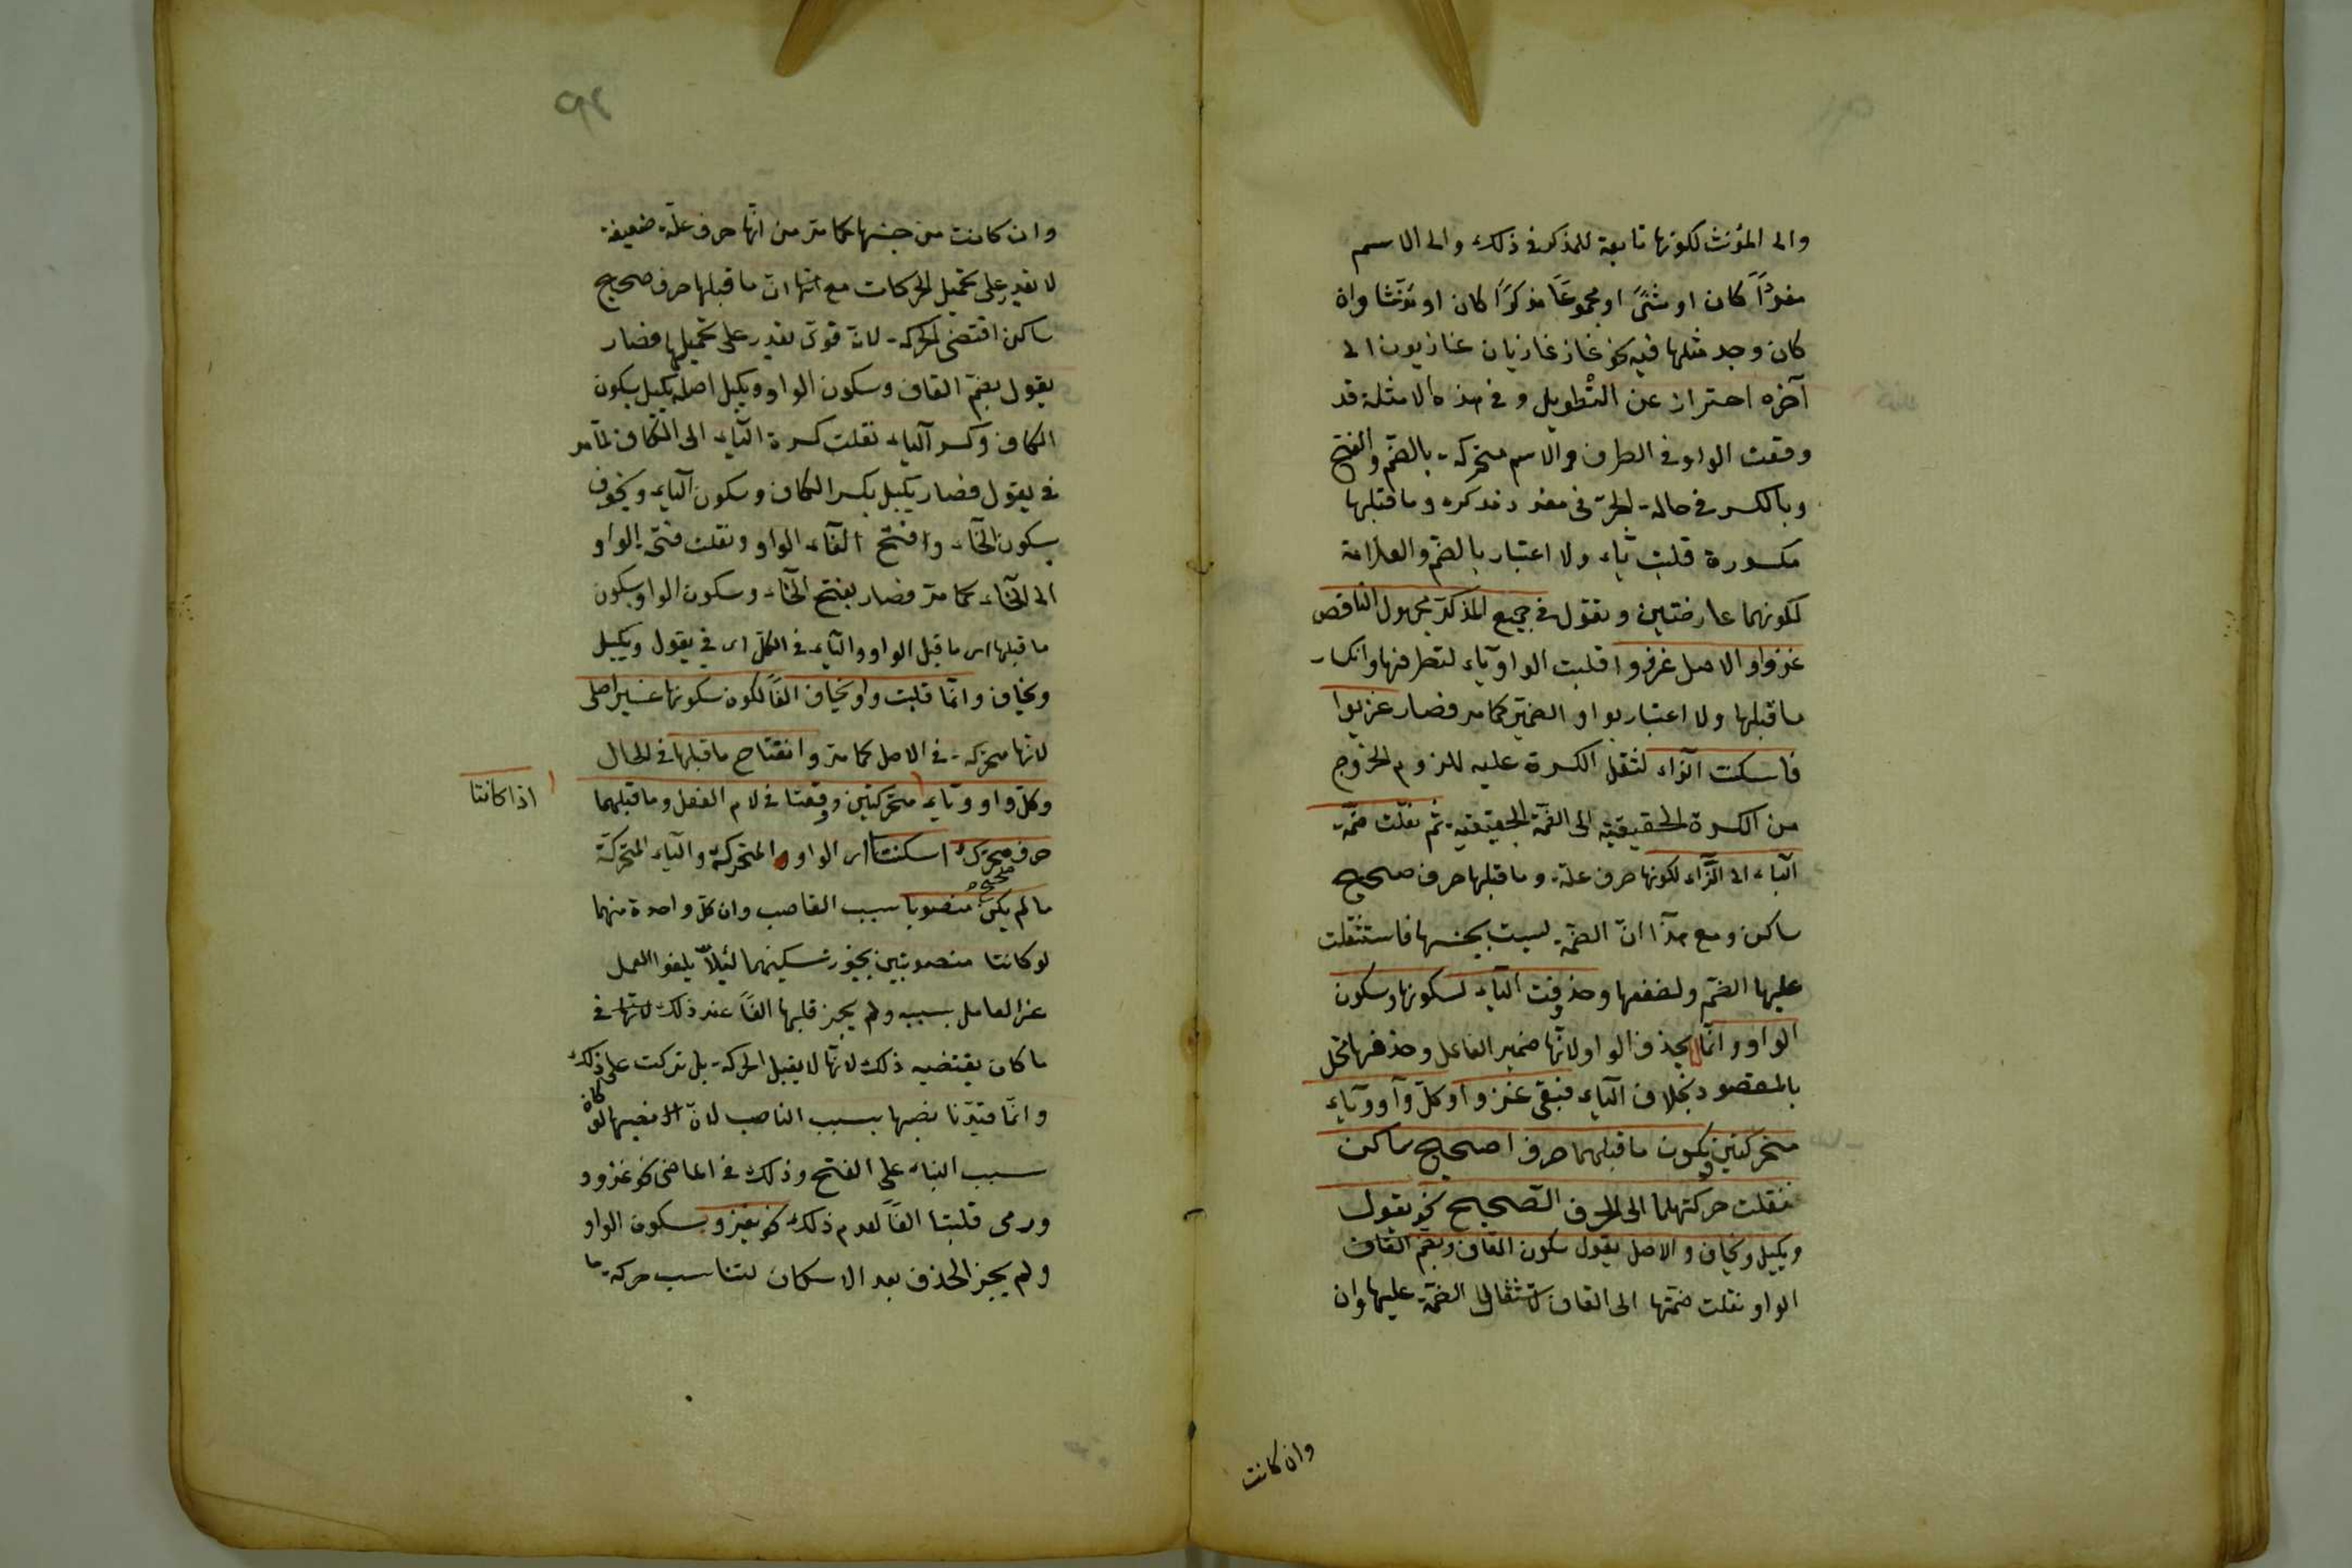 والى المؤنث لكونها تابعة للمذكر فى ذلك والى الاسم
مفردًا كان او مثنًى او مجموعًا مذكرًا كان او مؤنثا وان
كان وجد مثلها فيه نحو غاز غازيان غازيون الى
آخره احتراز عن التطويل وفى هذه الامثلة قد
وقعت الواو فى الطرف والاسم متحركة بالضم والفتح
وبالكسر فى حالة الجر فى مفرد مذكره وما قبلها
مكسورة قلبت ياء ولا اعتبار بالضم والعلامة
لكونهما عارضتين وتقول فى جمع المذكر مجهول الناقص
غزوا والاصل غزووا قلبت الواو ياء لتطرفها وانكسار
ما قبلها ولا اعتبار بواو الضمير كما مر فصار غزيوا
فاسكنت الزاء لثقل الكسرة عليه للزوم الخروج
من الكسرة الحقيقية الى الضمة الحقيقية ثم نقلت ضمة
الياء الى الزاء لكونها حرف علة وما قبلها حرف صحيح
ساكن ومع هذا ان الضمة ليست بجنسها فاستثقلت
عليها الضم ولضعفها وحذفت الياء لسكونها وسكون
الواو وانما لم يحذف الواو لانها ضمير الفاعل وحذفها مخل
بالمقصود بخلاف الياء فبقى غزوا وكل واو وياء
متحركتين يكون ما قبلهما حرفا صحيح ساكن
نقلت حركتهما الى الحرف الصحيح نحو يقول
ويكيل ويخاف والاصل يقول سكون القاف وبضم القاف
الواو نقلت ضمتها الى القاف لاستثقال الضمة عليها وان
وان كانت
وان كانت من جنسها كما مر من انها حرف علة ضعيفة
لا تقدر على تحميل الحركات مع انها ان ما قبلها حرف صحيح
ساكن اقتضى الحركة لانه قوى يقدر على تحميلها فصار
يقول بضم القاف وسكون الواو ويكيل اصله يكيل بسكون
الكاف وكسر الياء نقلت كسرة الياء الى الكاف لما مر
فى يقول فصار يكيل بكسر الكاف وسكون الياء ويخوف
بسكون الخاء وافتح الفاء الواو ونقلت فتحة الواو
الى الخاء كما مر فصار بفتح الخاء وسكون الواو بسكون
ما قبلها اى ما قبل الواو والياء فى الكل اى فى يقول ويكيل
ويخاف وانما قلبت واو يخاف الفًا لكون سكونها غير اصلى
لانها متحركة فى الاصل كما مر وانفتاح ما قبلها فى الحال
وكل واو وياء متحركتين وقعتا فى لام الفعل وما قبلهما
اذا كانتا
حرف متحرك اسكنتا اى الواو المتحركة والياء المتحركة
ما لم يكن منصوبا بسبب الناصب وان كل واحدة منهما
لو كانتا منصوبتين يجوز تسكينهما لئلا يلغوا العمل
عن العامل بسببه ولم يجز قلبها الفًا عند ذلك لانها فى
ما كان يقتضيه ذلك لانها لا يقبل الحركة بل تركت على ذلك
وانما قيدنا نصبها بسبب الناصب لان نصبهما لو كان
سبب البناء على الفتح وذلك فى الماضى نحو غزو و
ورمى قلبتا الفًا لعدم ذلك نحو يغزو بسكون الواو
ولم يجز الحذف بعد الاسكان لتناسب حركة ما